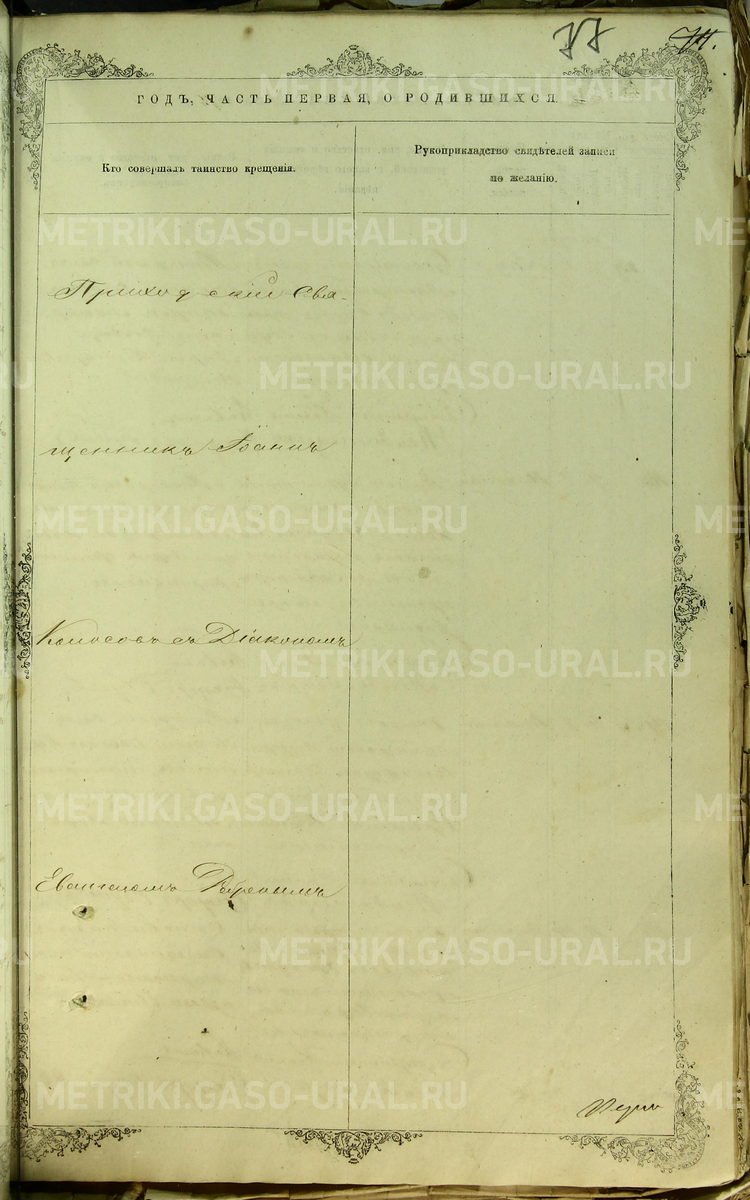 77
71.
ГОДЪ, ЧАСТЬ ПЕРВАЯ, О РОДИВШИХСЯ.
Кто совершалъ таинство крещенія.
Рукоприкладство свидѣтелей записи
по желанію.
Приходскій Свя-
щенникъ Іоаннъ
Колосовъ съ Діакономъ
Евангеломъ
METRIKI.GASO-URAL.RU